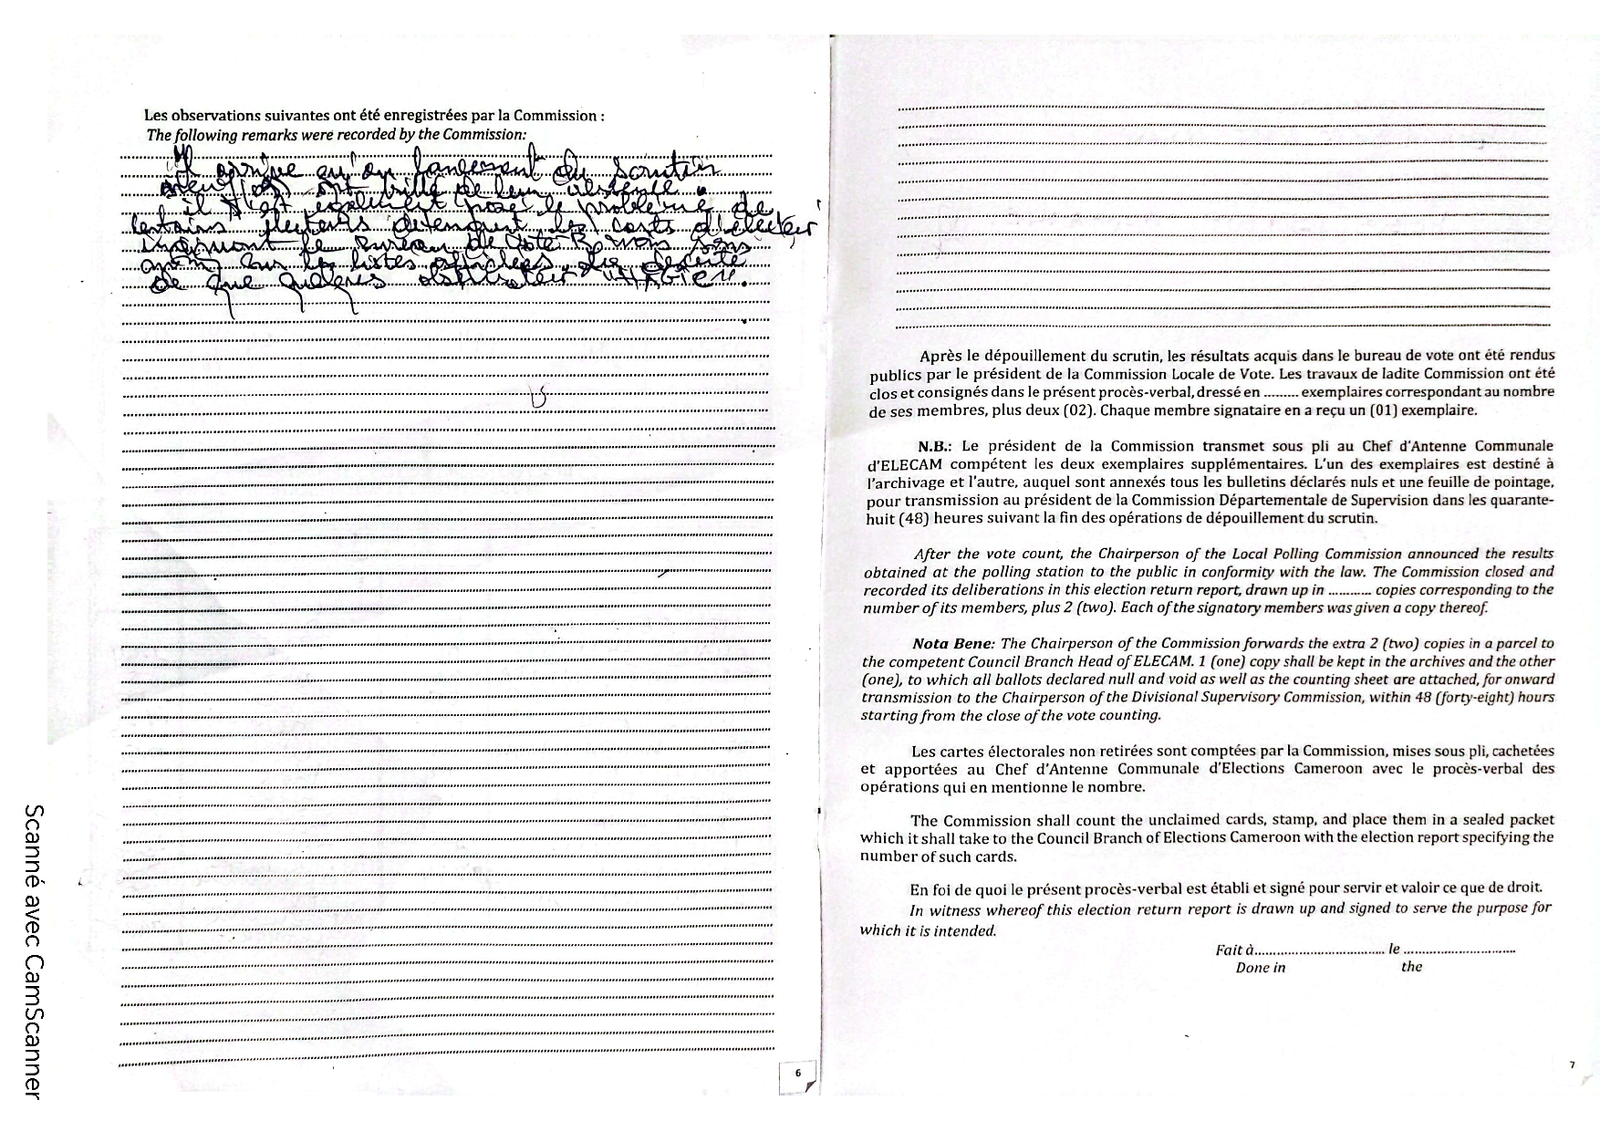 Les observations suivantes ont été enregistrées par la Commission :
The following remarks were recorded by the Commission:
Il arrive qu'au lancement du scrutin
ont brillé de leur absence.
il s'est également posé le problème de
certains détenant les carts d'électeur
le bureau de vote B mais sans
sur les listes affichées.
de que quelques observateur
6
Après le dépouillement du scrutin, les résultats acquis dans le bureau de vote ont été rendus
publics par le président de la Commission Locale de Vote. Les travaux de ladite Commission ont été
clos et consignés dans le présent procès-verbal, dressé en ......... exemplaires correspondant au nombre
de ses membres, plus deux (02). Chaque membre signataire en a reçu un (01) exemplaire.
N.B.: Le président de la Commission transmet sous pli au Chef d'Antenne Communale
d'ELECAM compétent les deux exemplaires supplémentaires. L'un des exemplaires est destiné à
l'archivage et l'autre, auquel sont annexés tous les bulletins déclarés nuls et une feuille de pointage,
pour transmission au président de la Commission Départementale de Supervision dans les quarante-
huit (48) heures suivant la fin des opérations de dépouillement du scrutin.
After the vote count, the Chairperson of the Local Polling Commission announced the results
obtained at the polling station to the public in conformity with the law. The Commission closed and
recorded its deliberations in this election return report, drawn up in ........... copies corresponding to the
number of its members, plus 2 (two). Each of the signatory members was given a copy thereof.
Nota Bene: The Chairperson of the Commission forwards the extra 2 (two) copies in a parcel to
the competent Council Branch Head of ELECAM. 1 (one) copy shall be kept in the archives and the other
(one), to which all ballots declared null and void as well as the counting sheet are attached, for onward
transmission to the Chairperson of the Divisional Supervisory Commission, within 48 (forty-eight) hours
starting from the close of the vote counting.
Les cartes électorales non retirées sont comptées par la Commission, mises sous pli, cachetées
et apportées au Chef d'Antenne Communale d'Elections Cameroon avec le procès-verbal des
opérations qui en mentionne le nombre.
The Commission shall count the unclaimed cards, stamp, and place them in a sealed packet
which it shall take to the Council Branch of Elections Cameroon with the election report specifying the
number of such cards.
En foi de quoi le présent procès-verbal est établi et signé pour servir et valoir ce que de droit.
In witness whereof this election return report is drawn up and signed to serve the purpose for
which it is intended.
Fait à.................................... le ..............................
Done in the
7
Scanné avec CamScanner